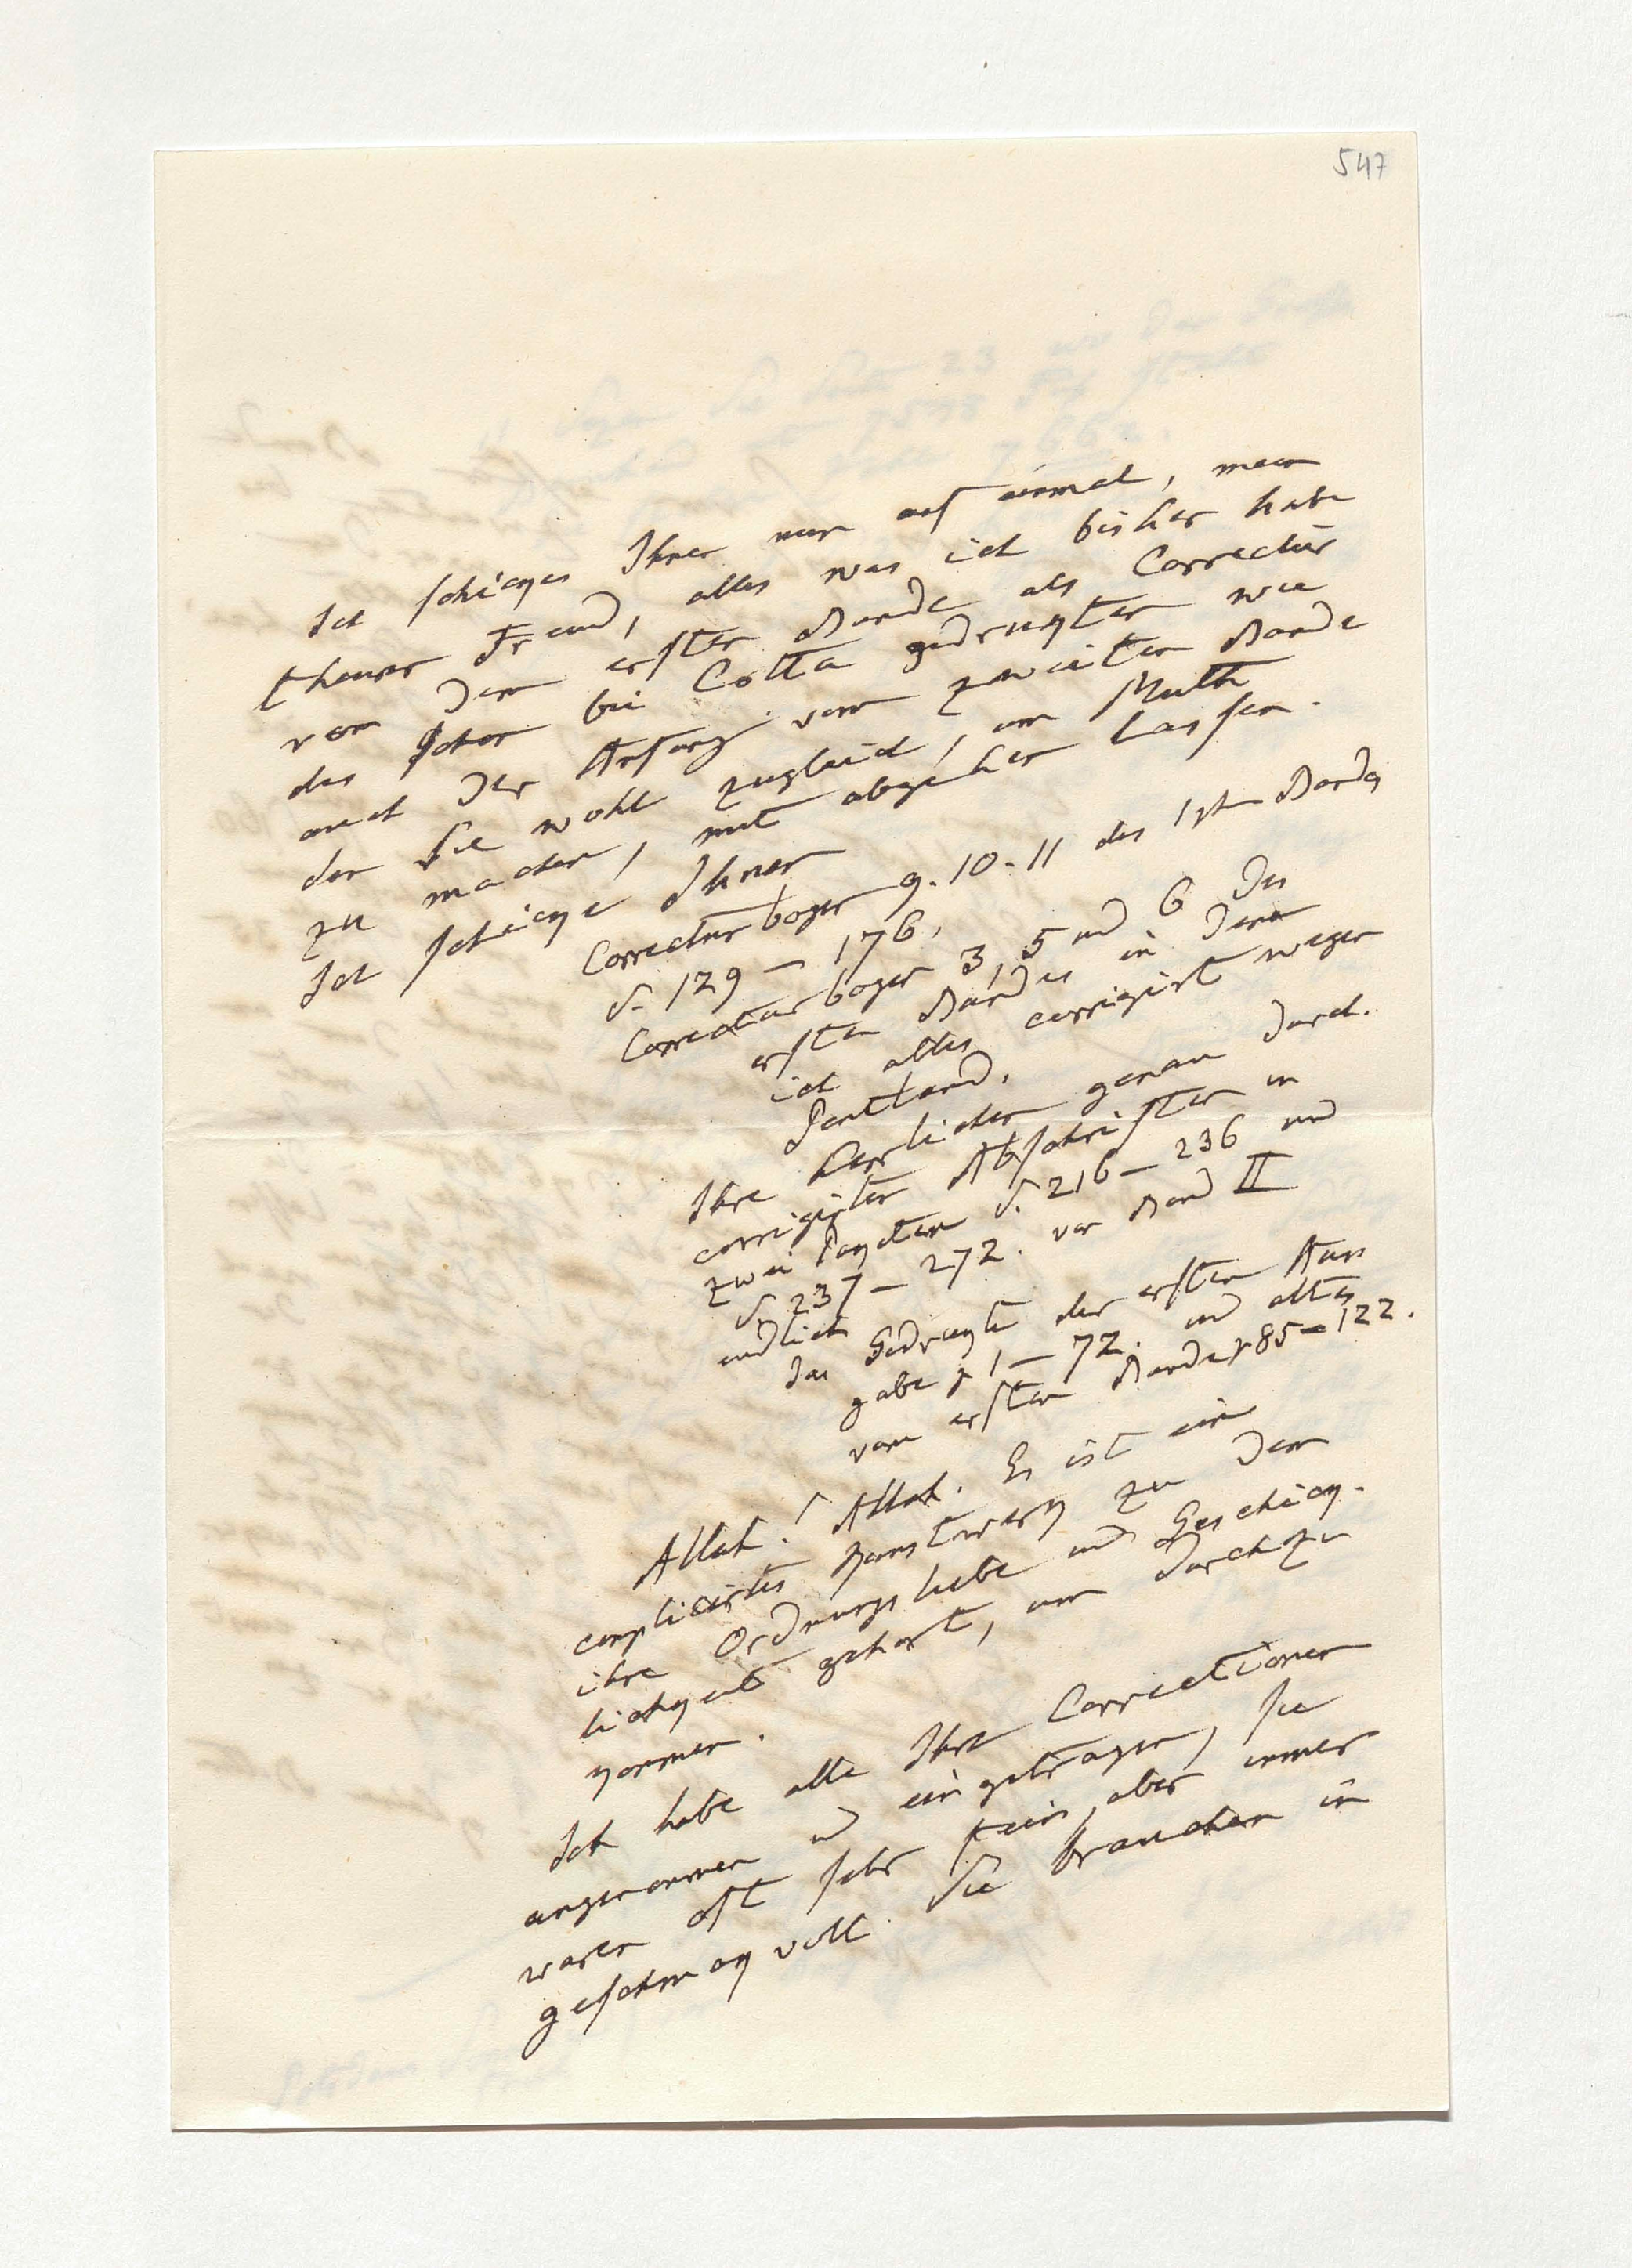 547
Ich schicke Ihnen nun auf einmal, mein
theurer Freund, alles was ich bisher habe
von dem ersten Bande als Correctur
des schon bei Cotta gedrukten wie
auch der Anfang vom zweiten Bande
den Sie wohl zugleich, um Muth
zu machen, mit abgehen lassen.
Ich schicke Ihnen
Correcturbogen 9. 10. 11 des 1sten Bandes
S. 129 – 176.
Correcturbogen 3, 5 und 6 des
ersten Bandes in denen
ich alles corrigirt wegen
Pentland.
Ihre herrlichen genau durch
corrigirten Abschriften in
zwei Paqueten S. 216 – 236 und
S. 237 – 272. von Band II
endlich
das Gedrukte der ersten Aus
gabe p 1 – 72. und altes
vom ersten Bande p 85 – 122.
Allah! Allah. Es ist ein
complicirtes Kunstwerk zu dem
ihre Ordnungsliebe und Geschick
lichkeit gehört, um durchzu
kommen.
Ich habe alle Ihre Correctionen
angenommen u eingetragen, sie
waren oft sehr fein, aber immer
geschmakvoll. Sie brauchen in